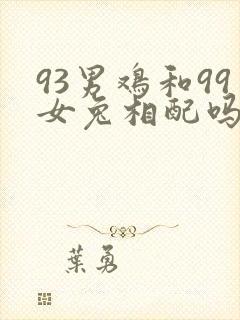 93男鸡和99
女兔相配吗
葉勇